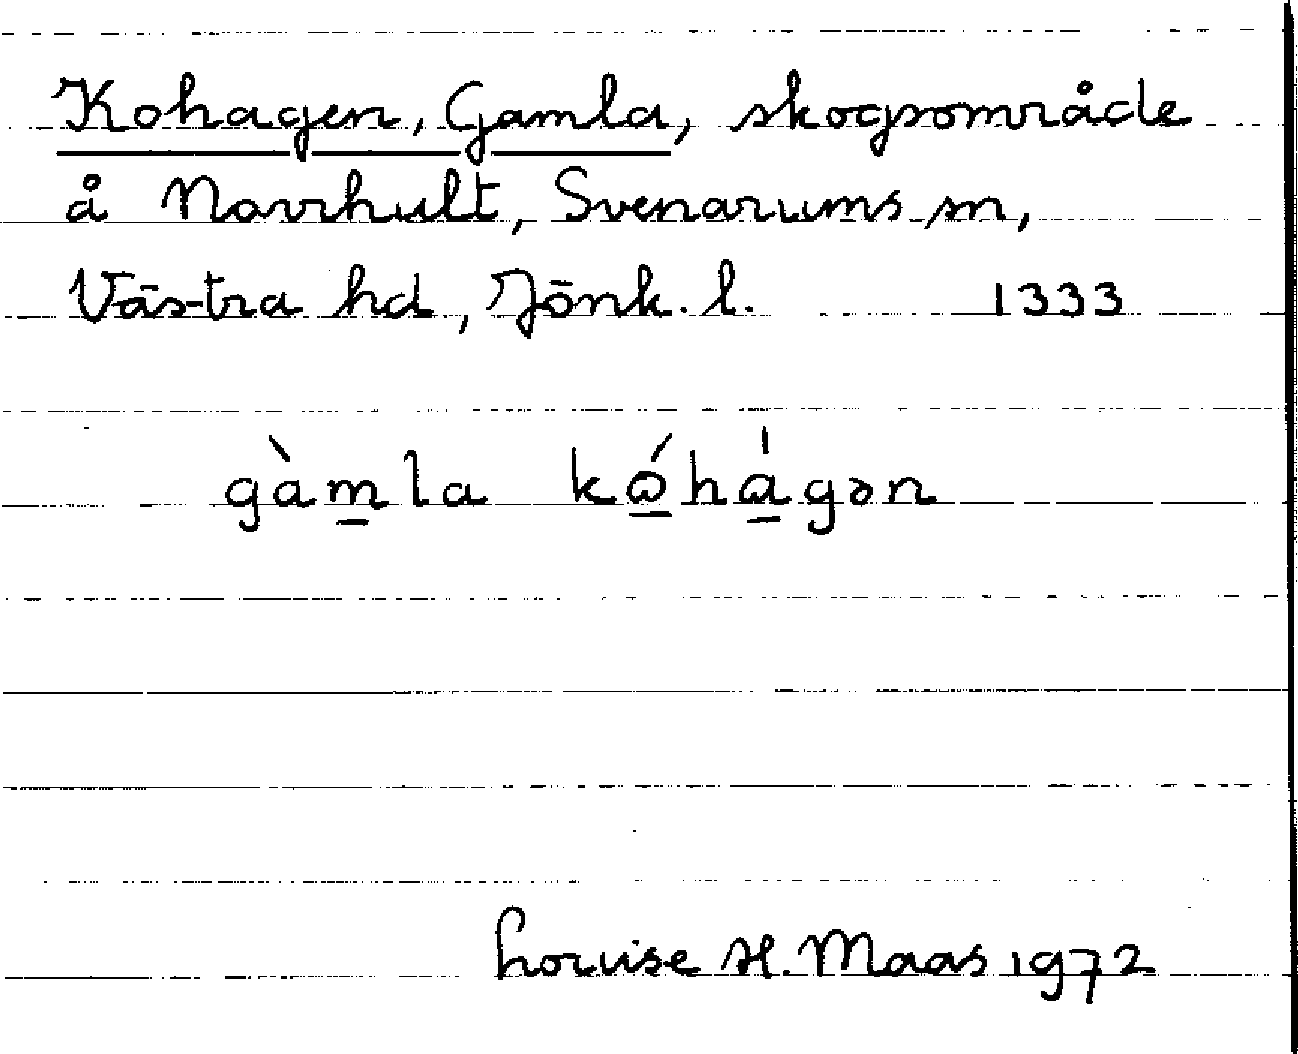 Kohagen, Gamla, skogsområde
å Norrhult, Svenarums sn,
Västra hd, Jönk. l. 1333
gàmla kǿhágən
Louise H. Maas 1972